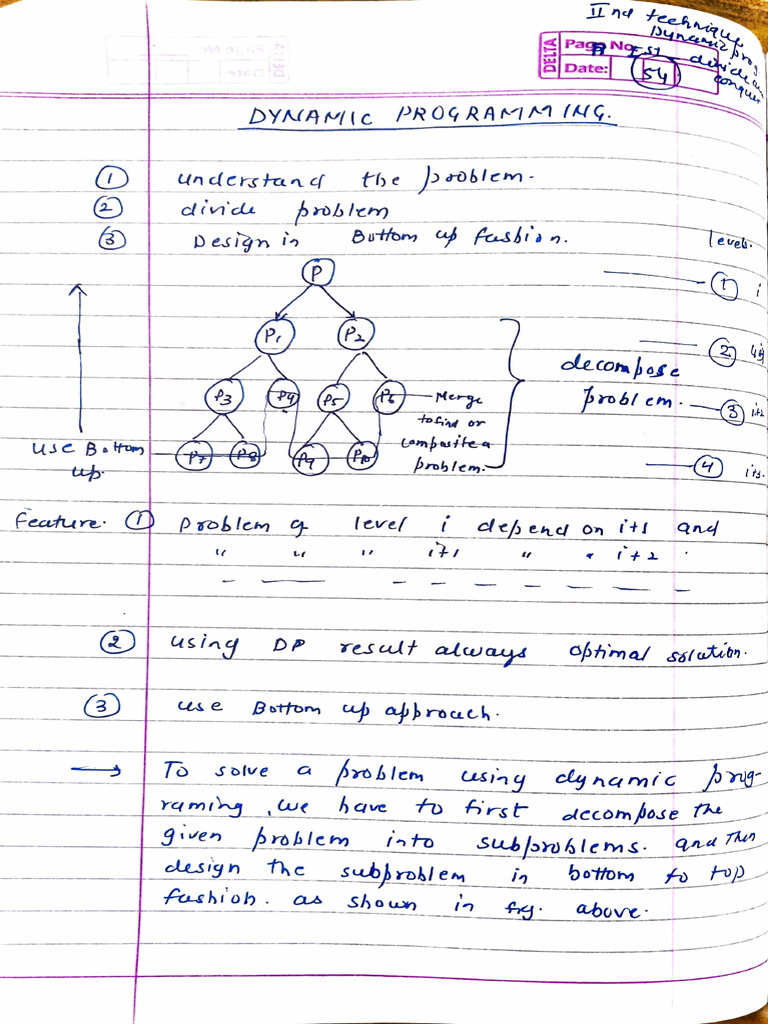 IInd technique
Dynamic prog.
DELTA
Page No
Ist - divide an
conquer
Date: 54
DYNAMIC PROGRAMMING.
① understand the problem.
② divide problem
③ Design in Bottom up fashion.
levels.
P
① i
P1 P2
② i+1
decompose
problem.
③ i+2
P3 P4 P5 P6 Merge
to find or
composite a
problem.
use Bottom
up.
P7 P8 P9 P10
④ i+3
Feature. ① problem of level i depend on i+1 and
" " " i+1 " " i+2
② using DP result always optimal solution.
③ use Bottom up approach.
→ To solve a problem using dynamic prog-
raming, we have to first decompose the
given problem into subproblems. and then
design the subproblem in bottom to top
fashion. as shown in fig. above.